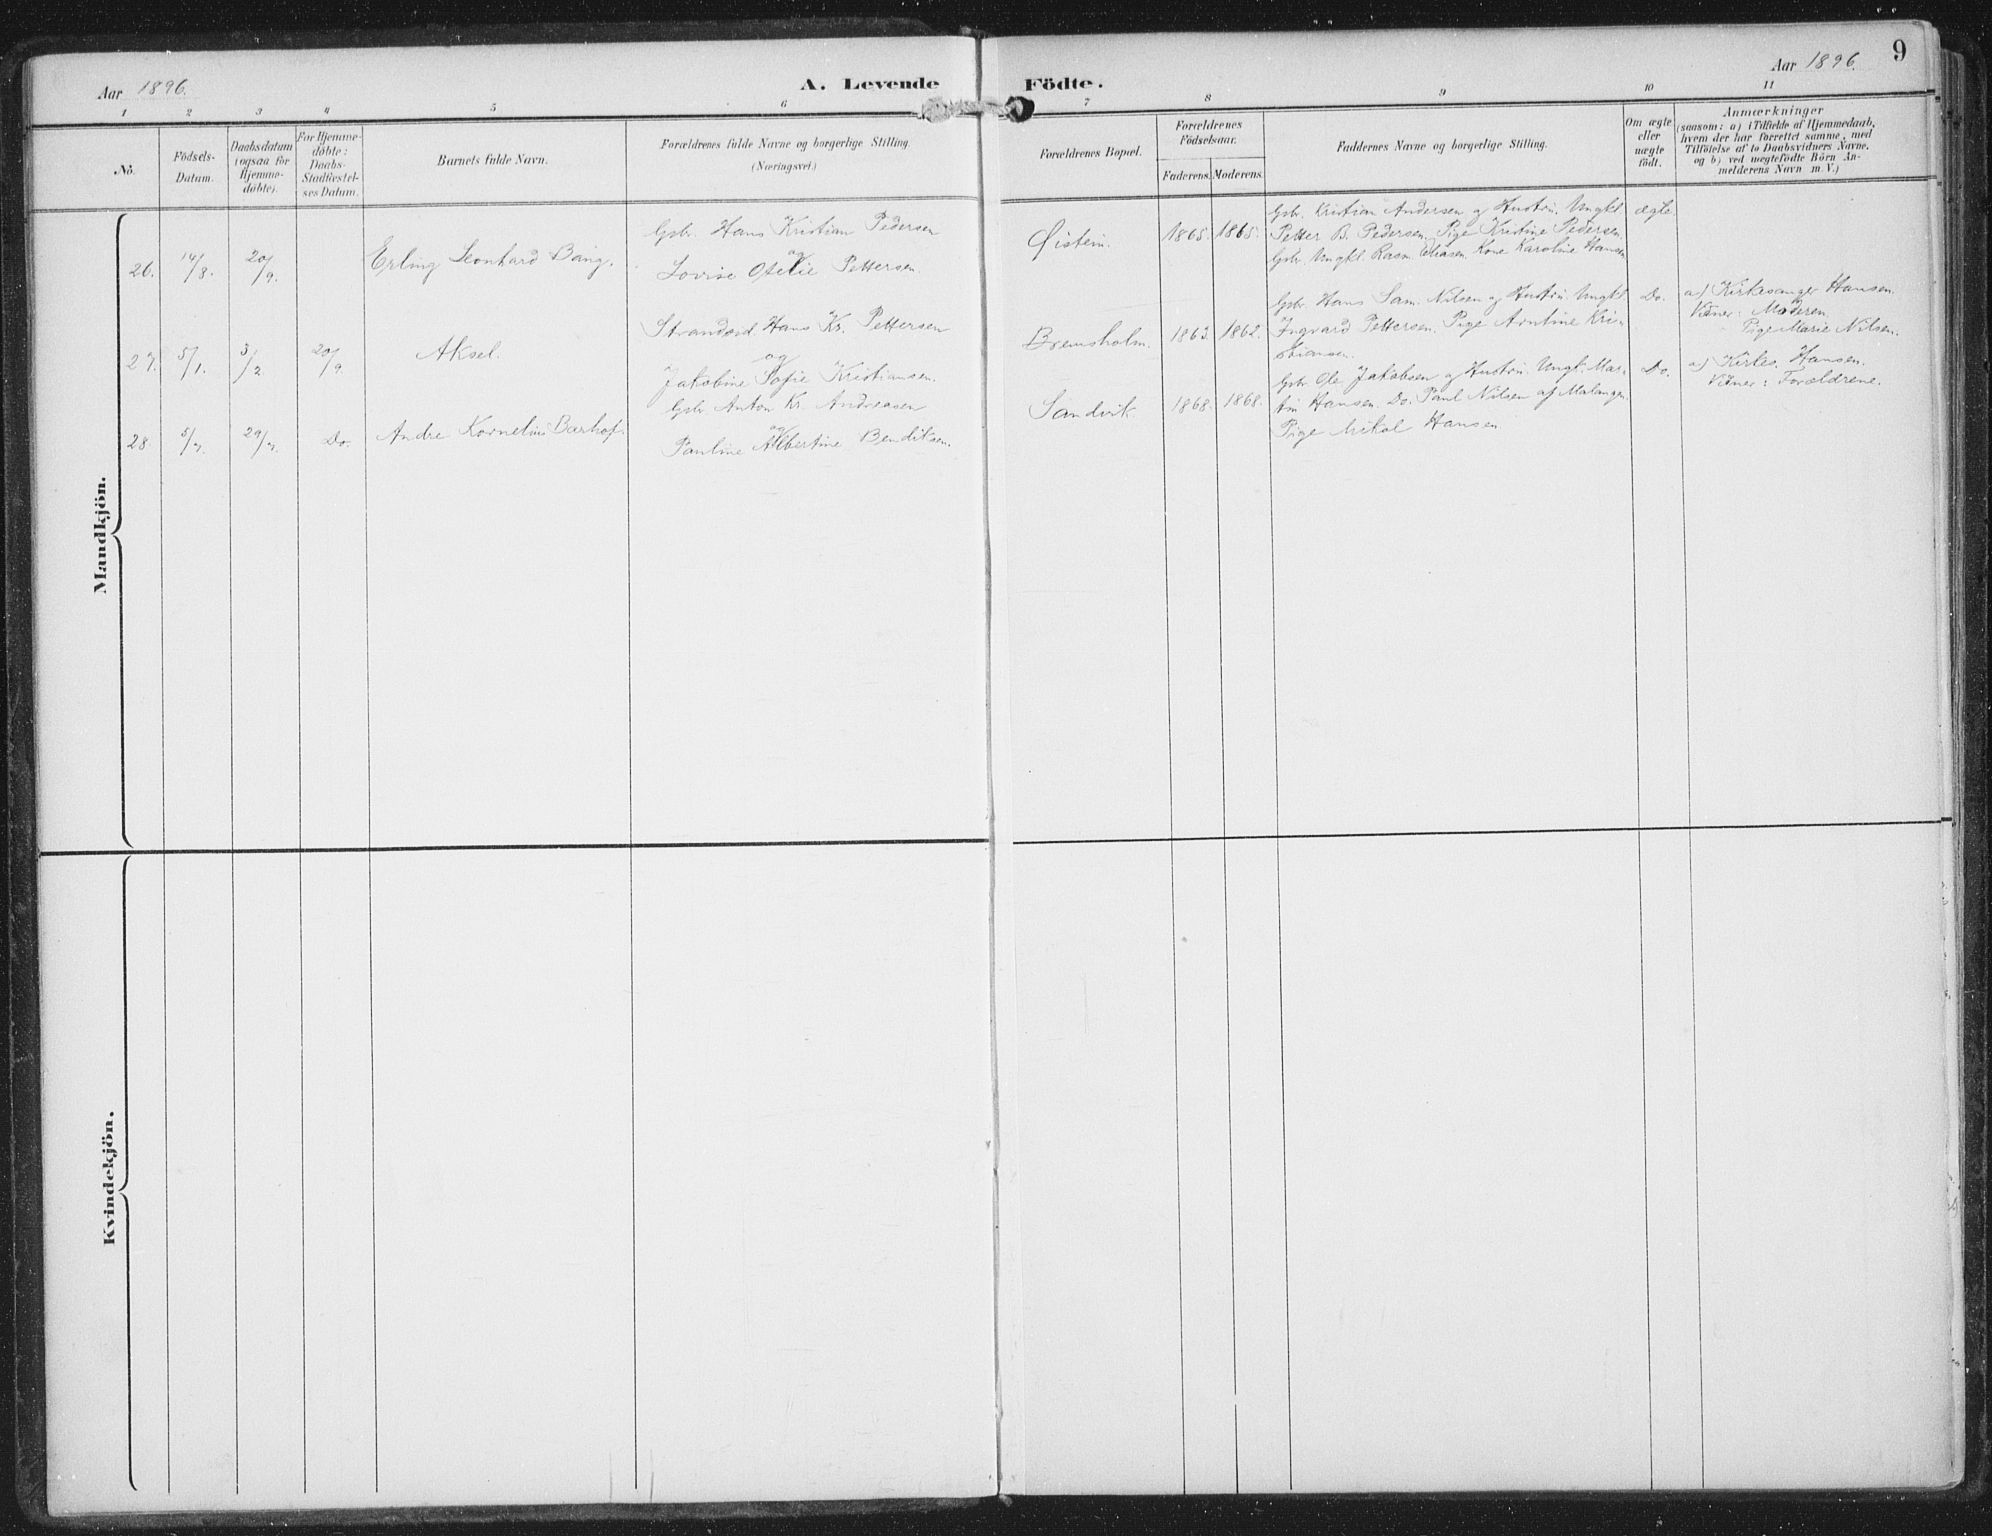 Aar 1896.
A. Levende
Födte.
Aar 1896.
9
1 2 3 4 5 6
7 8 9 10 11
No.
Födsels-
Datum.
Daabsdatum
(ogsaa for
Hjemme-
döbte).
For Hjemme-
døbte:
Daabs-
Stadfæstel-
ses Datum.
Barnets fulde Navn.
Forældrenes fulde Navne og borgerlige Stilling.
(Næringsvei.)
Forældrenes Bopæl.
Forældrenes
Födselsaar.
Faderens. Moderens.
Faddernes Navne og borgerlige Stilling.
Om ægte
eller
uægte
født.
Anmærkninger
(saasom: a) i Tilfælde af Hjemmedaab,
hvem der har forrettet samme, med
Tilföielse af to Daabsvidners Navne.
og b) ved uegtefödte Börn An-
melderens Navn m. V.)
Mandkjön.
26. 14/8. 20/9. Erling Leonhard Bang.
Gsbr. Hans Kristian Pedersen
og
Lovise Ofelie Pettersen.
Øistein. 1865. 1865.
Gsbr. Kristian Andersen og Hustru. Ungkl.
Petter B. Pedersen. Pige Kristine Pedersen.
Gsbr. Ungkl. Rasm. Kone Karoline Hansen
ægte
27. 5/1. 3/2 20/9 Aksel.
Strandsid. Hans Kr. Pettersen
og
Jakobine Sofie Kristiansen.
Bremsholm. 1863. 1862.
Gsbr. Hans Sam. Nilsen og Hustru. Ungkl.
Ingvard Pettersen. Pige Arntine Kri-
stiansen.
Do.
a) Kirkesanger Hansen.
Vidner: Moderen.
Pige Marie Nilsen.
28. 5/7. 29/7. Do. Andre Kornelius Barhof.
Gsbr. Anton Kr. Andreasen
og
Pauline Albertine Bendiksen.
Sandvik. 1868. 1868.
Gsbr. Ole Jakobsen og Hustru. Ungk. Mar-
tin Hansen. Do. Paul Nilsen af Malangen
Pige Mikal Hansen
Do.
a) Kirkes. Hansen.
Vidner: Forældrene.
Kvindekjön.